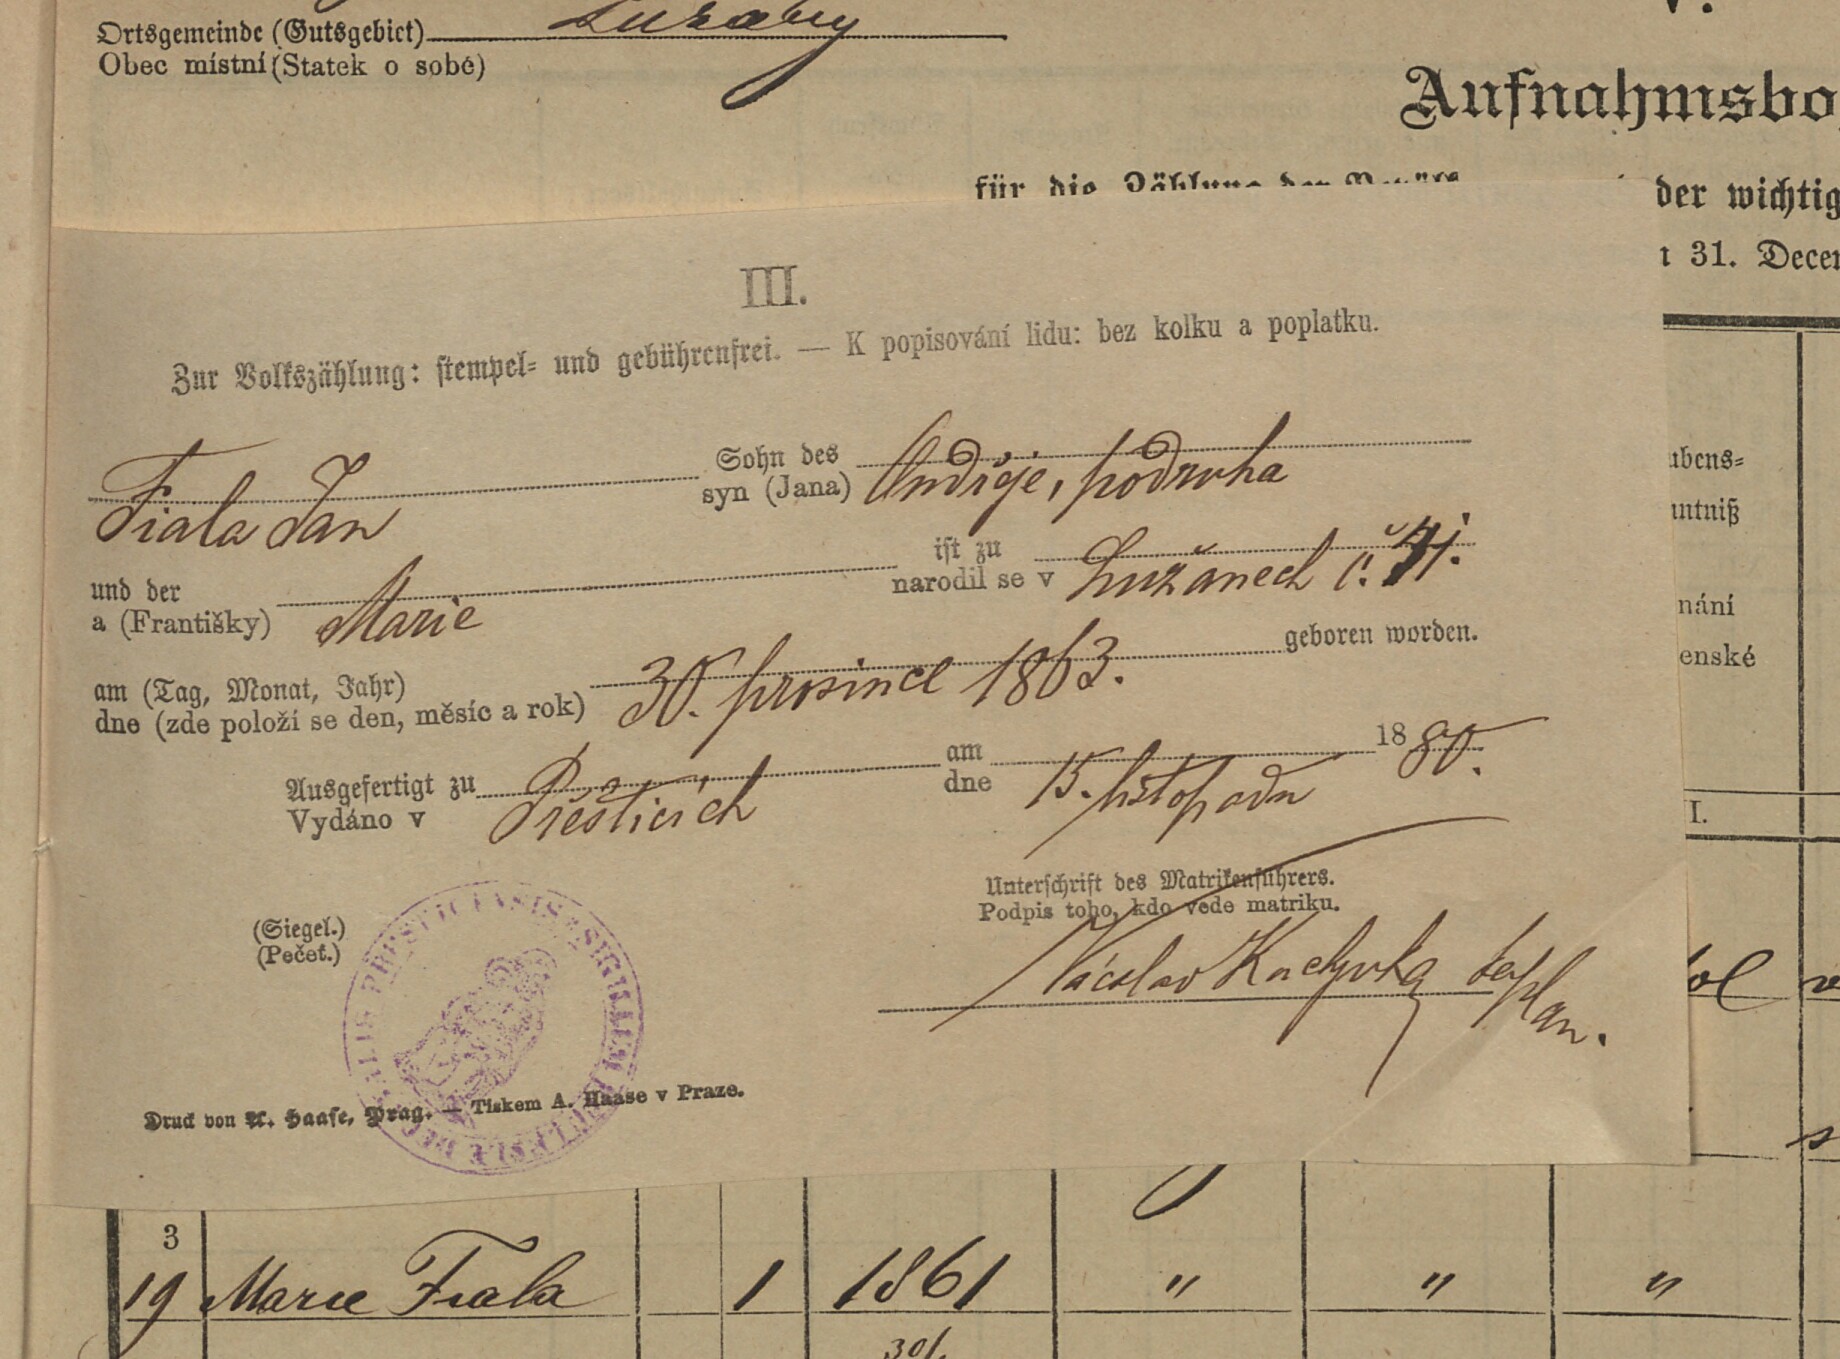 Ortsgemeinde (Gutsgebiet) Lužany
Obec místní (Statek o sobě)
V.
Aufnahmsbo
für die Zählung der
der wichtig
31. Decem
III.
Zur Volkszählung: stempel- und gebührenfrei. — K popisování lidu: bez kolku a poplatku.
Fiala Jan
Sohn des
syn (Jana)
Ondřeje, podruha
und der
a (Františky)
Marie
ist zu
narodil se v
Lužanech č. 41.
am (Tag, Monat, Jahr)
dne (zde položí se den, měsíc a rok)
30. prosince 1863.
geboren worden.
Ausgefertigt zu
Vydáno v
Přešticích
am
dne
15. listopadu
1880.
Unterschrift des Matrikenführers.
Podpis toho, kdo vede matriku.
(Siegel.)
(Pečeť.)
Václav kaplan.
Druck von A. Haase, Prag. — Tiskem A. Haase v Praze.
ubens-
nntniß
nání
enské
I.
3
19 Marie Fiala 1 1861 " " "